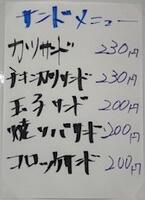 サンドメニュー
カツサンド 230円
チキンカツサンド 230円
玉子サンド 200円
焼ソバサンド 200円
コロッケサンド 200円